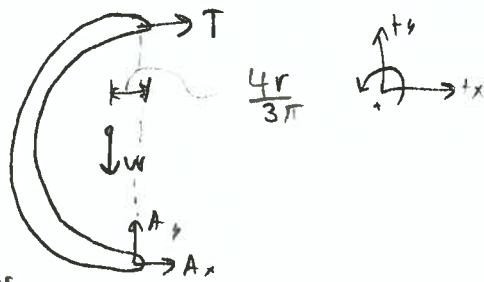 T
+y
4r
3π
+x
+
W
A y
A x